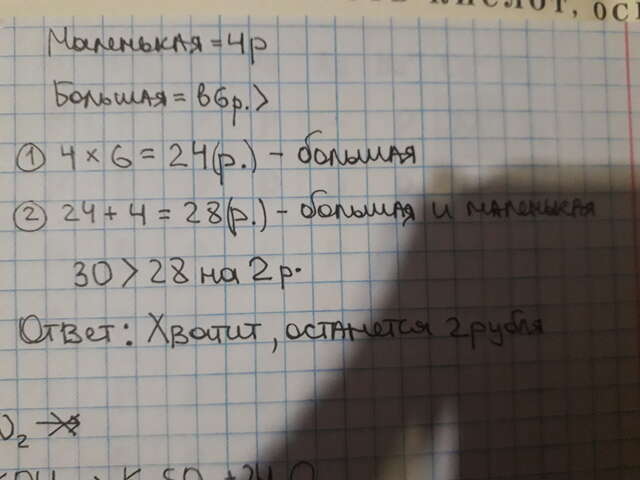 Маленькая = 4р
Большая = в 6р. >
① 4 × 6 = 24(р.) - большая
② 24 + 4 = 28(р.) - большая и маленькая
30 > 28 на 2 р.
Ответ: Хватит, останется 2 рубля